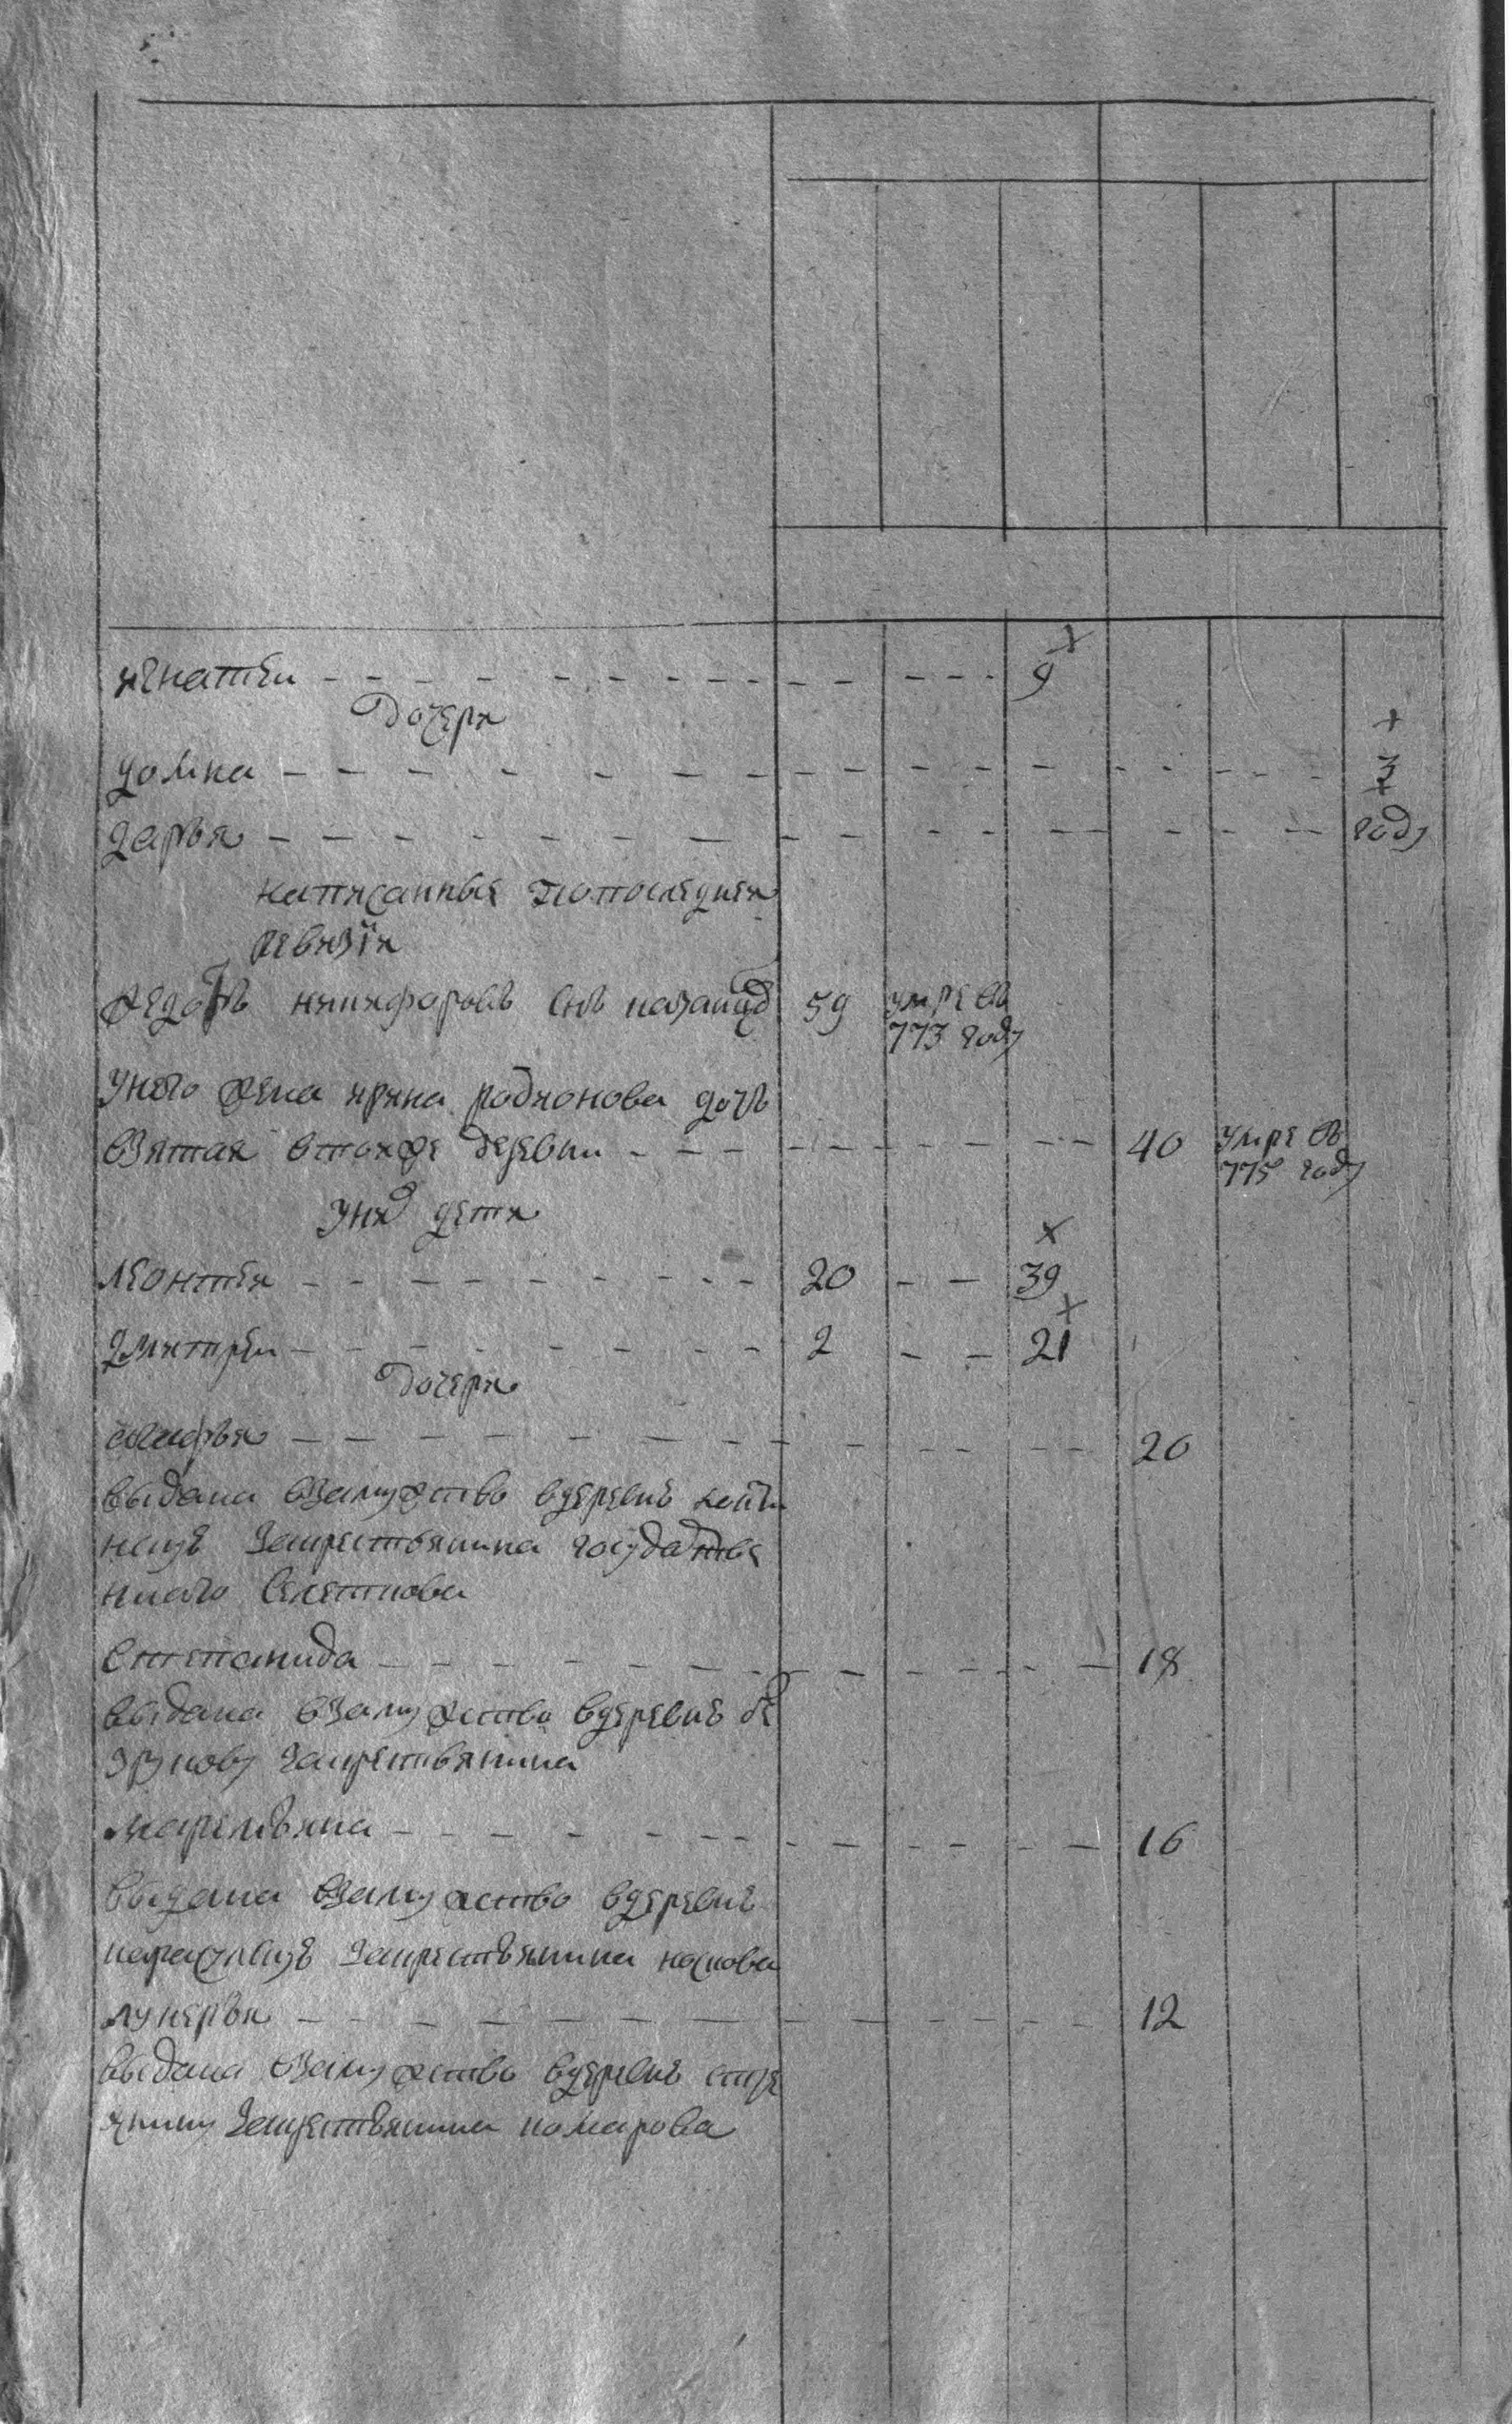 игнатеи 9
дочеря
домна 3
дарья году
написанныя попоследнея
ревизïи
федоръ никифоровъ снъ 59 умре въ
773 году
унего жена ирина родионова дочь
взятая втоиже деревни 40 умре въ
775 году
уних дети
леонтеи 20 39
дмитреи 2 21
дочеря
20
выдана взамужство вдеревне
закрестьянина государстве
ннаго селеткова
степанида 18
выдана взамужство вдеревне бе
закрестьянина
маремьяна 16
выдана взамужство вдеревне
карасулкуе закрестьянина носкова
лукерья 12
выдана взамужство вдеревне
закрестьянина комарова